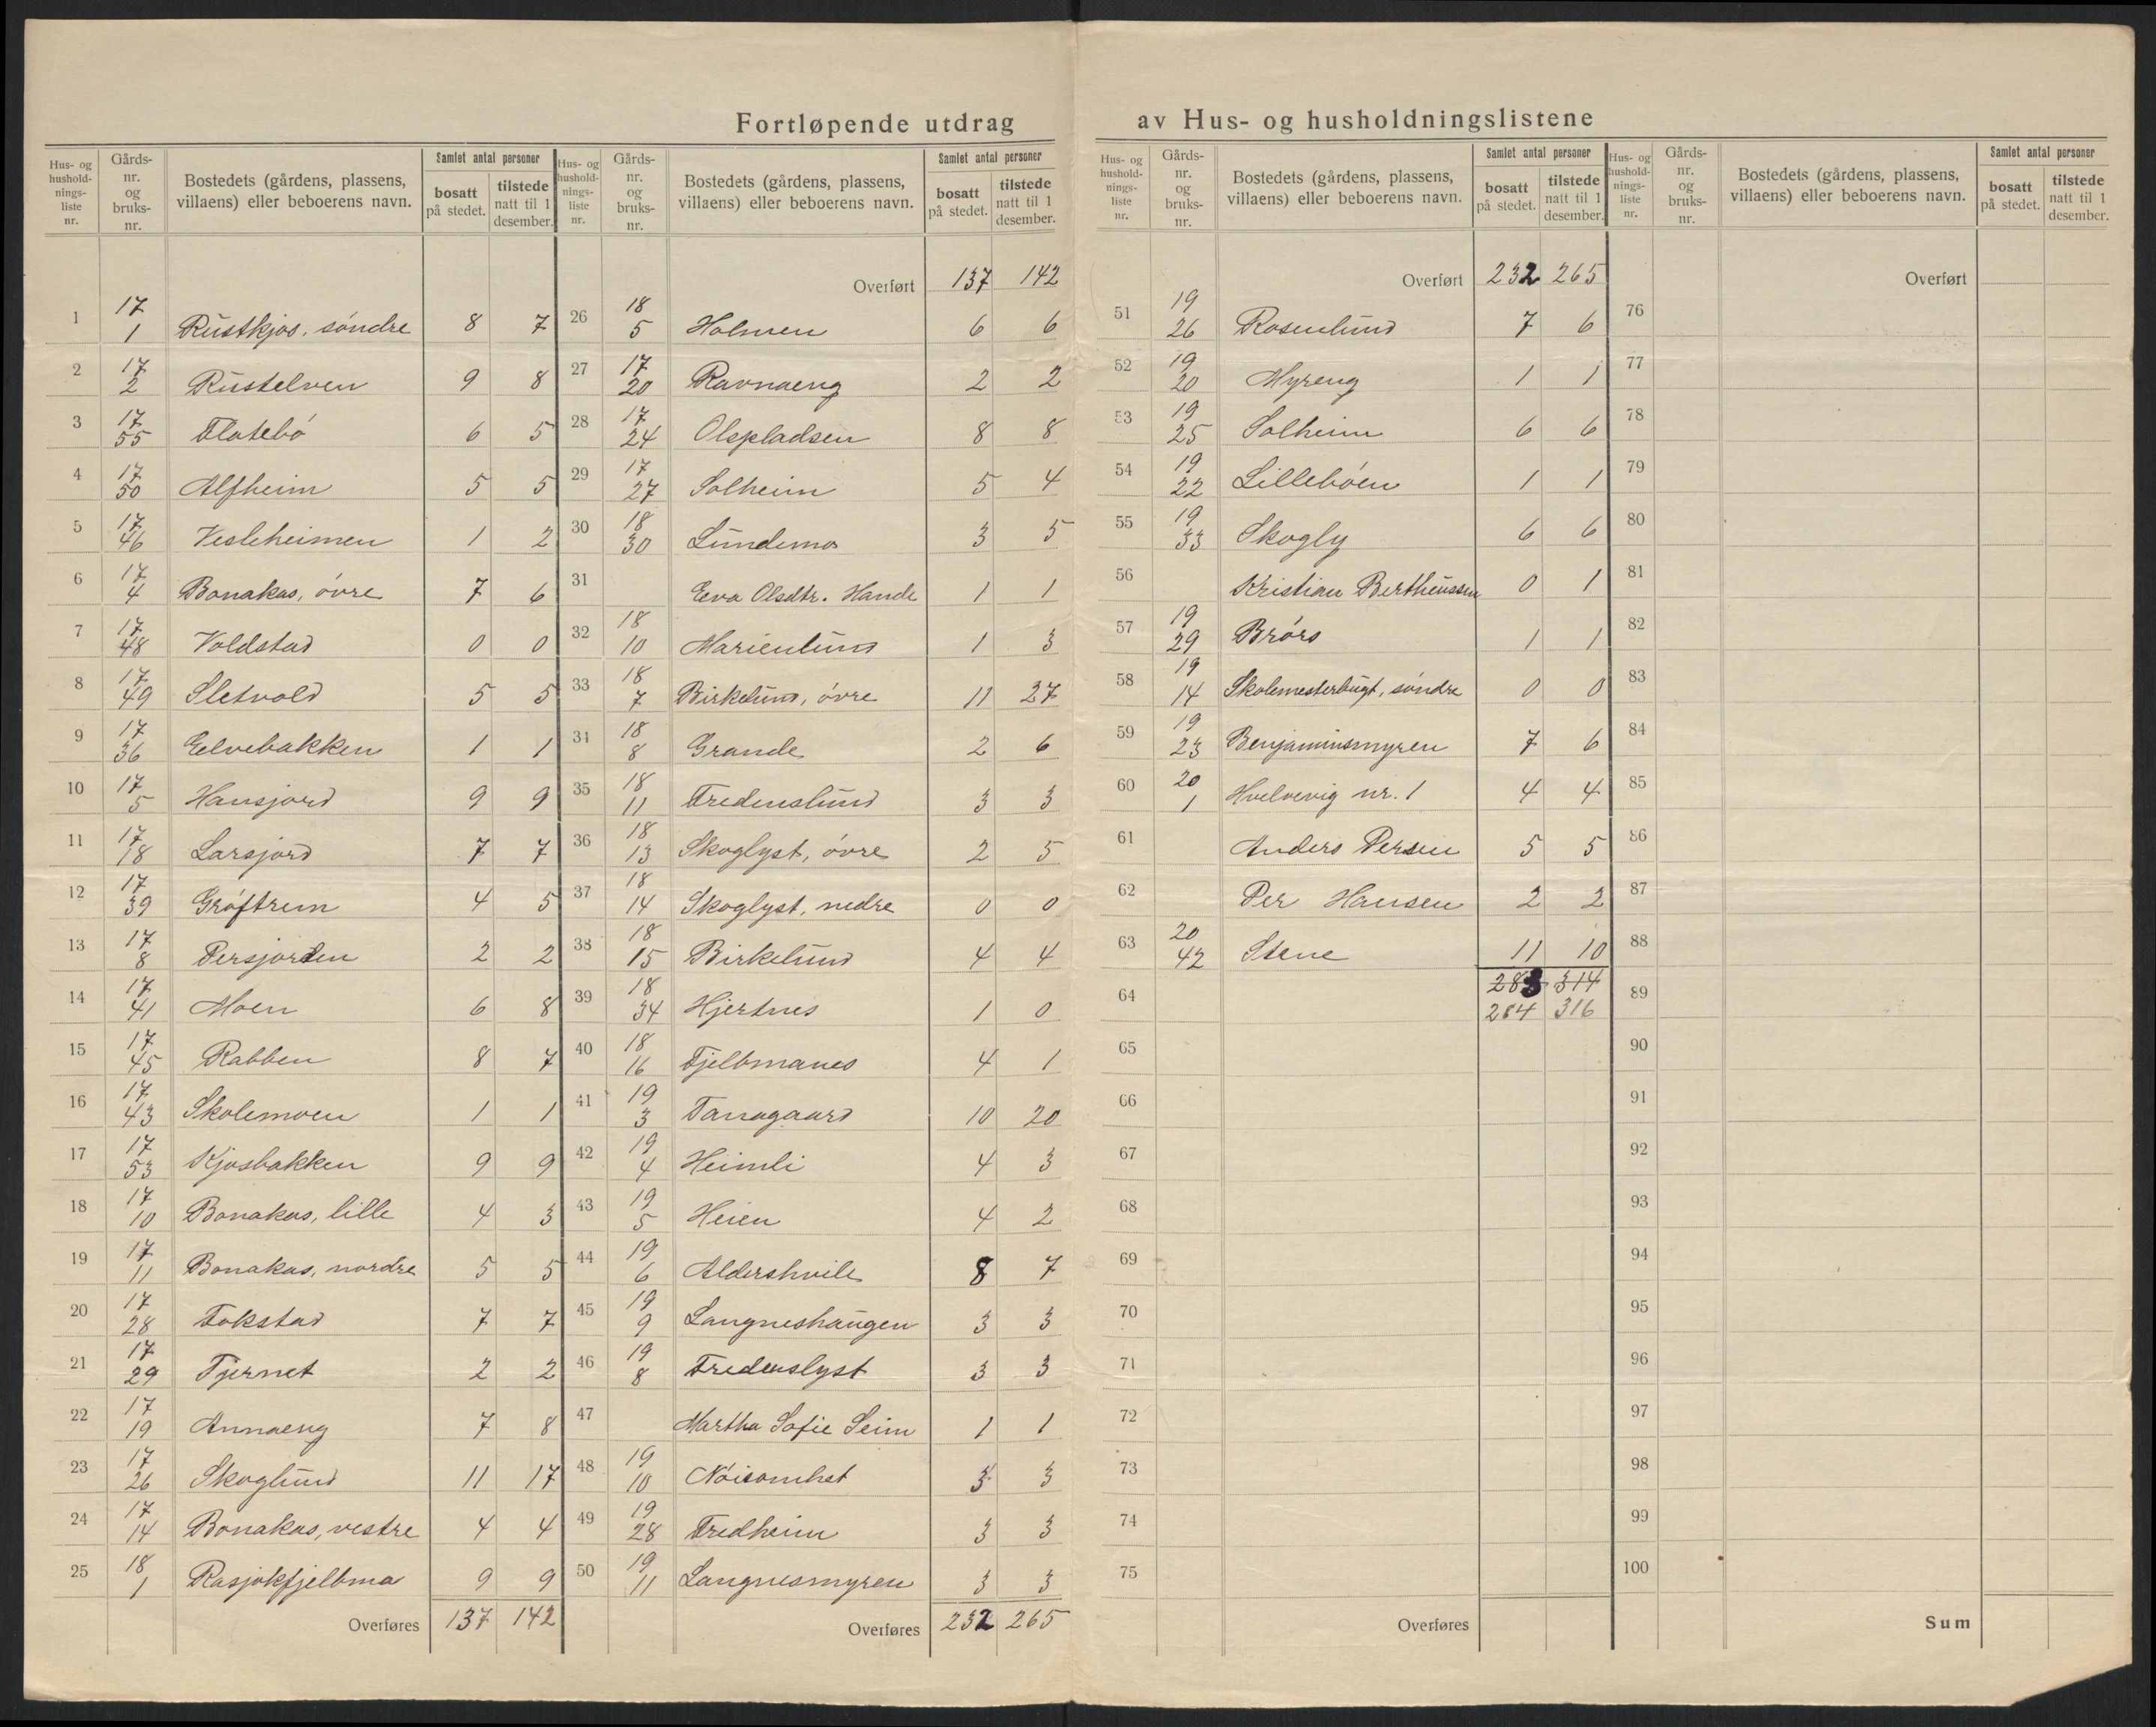 Fortløpende utdrag av Hus- og husholdningslistene
Hus- og hushold-nings-liste nr. | Gårds-nr. og bruks-nr. | Bostedets (gårdens, plassens, villaens) eller beboerens navn. | Samlet antal personer | bosatt på stedet. | tilstede natt til 1 desember.
1 17/1 Rustkjos, söndre 8 7
2 17/2 Rustelven 9 8
3 17/55 Flatebö 6 5
4 17/50 Alfheim 5 5
5 17/46 Vesleheimen 1 2
6 17/4 Bonakas, övre 7 6
7 17/48 Voldstad 0 0
8 17/49 Sletvold 5 5
9 17/36 Eelvebakken 1 1
10 17/5 Hansjord 9 9
11 17/18 Larsjord 7 7
12 17/39 Gröftrem 4 5
13 17/8 Persjorden 2 2
14 17/41 Moen 6 8
15 17/45 Rabben 8 7
16 17/43 Skolemoen 1 1
17 17/53 Kjosbakken 9 9
18 17/10 Bonakas, lille 4 3
19 17/11 Bonakas, nordre 5 5
20 17/28 Fokstad 7 7
21 17/29 Tjernet 2 2
22 17/19 Annaeng 7 8
23 17/26 Skoglund 11 17
24 17/14 Bonakas, vestre 4 4
25 18/1 Rasjokfjelbma 9 9
Overføres 137 142
Hus- og hushold-nings-liste nr. | Gårds-nr. og bruks-nr. | Bostedets (gårdens, plassens, villaens) eller beboerens navn. | Samlet antal personer | bosatt på stedet. | tilstede natt til 1 desember.
Overført 137 142
26 18/5 Holmen 6 6
27 17/20 Ravnaeng 2 2
28 17/24 Olspladsen 8 8
29 17/27 Solheim 5 4
30 18/30 Lundemo 3 5
31 Eeva Olsdtr. Hande 1 1
32 18/10 Marienlund 1 3
33 18/7 Birkelund, övre 11 27
34 18/8 Grande 2 6
35 18/11 Fredenslund 3 3
36 18/13 Skoglyst, övre 2 5
37 18/14 Skoglyst, nedre 0 0
38 18/15 Birkelund 4 4
39 18/34 Hjertnes 1 0
40 18/16 Fjelbmanes 4 1
41 19/3 Tanagaard 10 20
42 19/4 Heimli 4 3
43 19/5 Heien 4 2
44 19/6 Aldershvile 8 7
45 19/9 Langneshaugen 3 3
46 19/8 Fredenslyst 3 3
47 Martha Sofie Seim 1 1
48 19/10 Nöisomhet 3 3
49 19/28 Fredheim 3 3
50 19/11 Langnesmyren 3 3
Overføres 232 265
Hus- og hushold-nings-liste nr. | Gårds-nr. og bruks-nr. | Bostedets (gårdens, plassens, villaens) eller beboerens navn. | Samlet antal personer | bosatt på stedet. | tilstede natt til 1 desember.
Overført 232 265
51 19/26 Rosenlund 7 6
52 19/20 Myreng 1 1
53 19/25 Solheim 6 6
54 19/22 Lilleböen 1 1
55 19/33 Skogly 6 6
56 Kristian Bertheussen 0 1
57 19/29 Brörs 1 1
58 19/14 Skolemesterbugt, söndre 0 0
59 19/23 Benjaminsmyren 7 6
60 20/1 Hvelvevig nr. 1 4 4
61 Anders Persen 5 5
62 Per Hansen 2 2
63 20/42 Stene 11 10
283 314
64 284 316
65
66
67
68
69
70
71
72
73
74
75
Overføres
Hus- og hushold-nings-liste nr. | Gårds-nr. og bruks-nr. | Bostedets (gårdens, plassens, villaens) eller beboerens navn. | Samlet antal personer | bosatt på stedet. | tilstede natt til 1 desember.
Overført
76
77
78
79
80
81
82
83
84
85
86
87
88
89
90
91
92
93
94
95
96
97
98
99
100
Sum